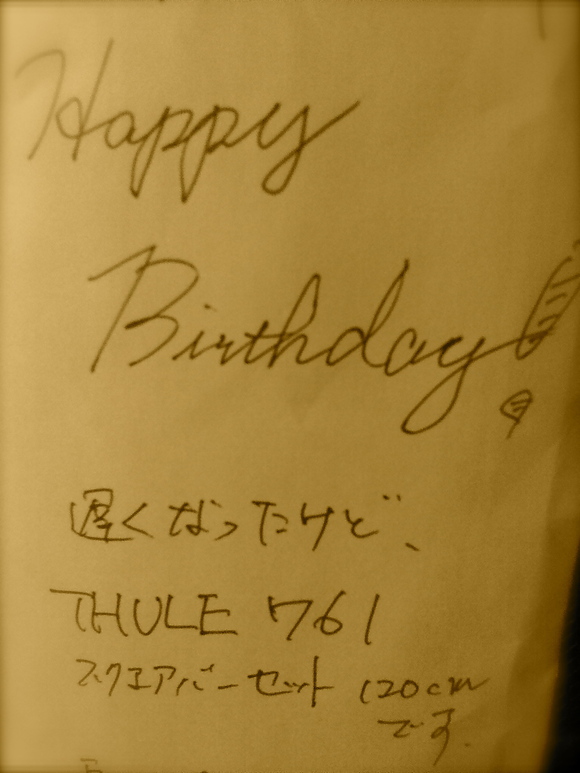 Happy
Birthday!
遅くなったけど、
THULE 761
スクエアバーセット 120cm
です.